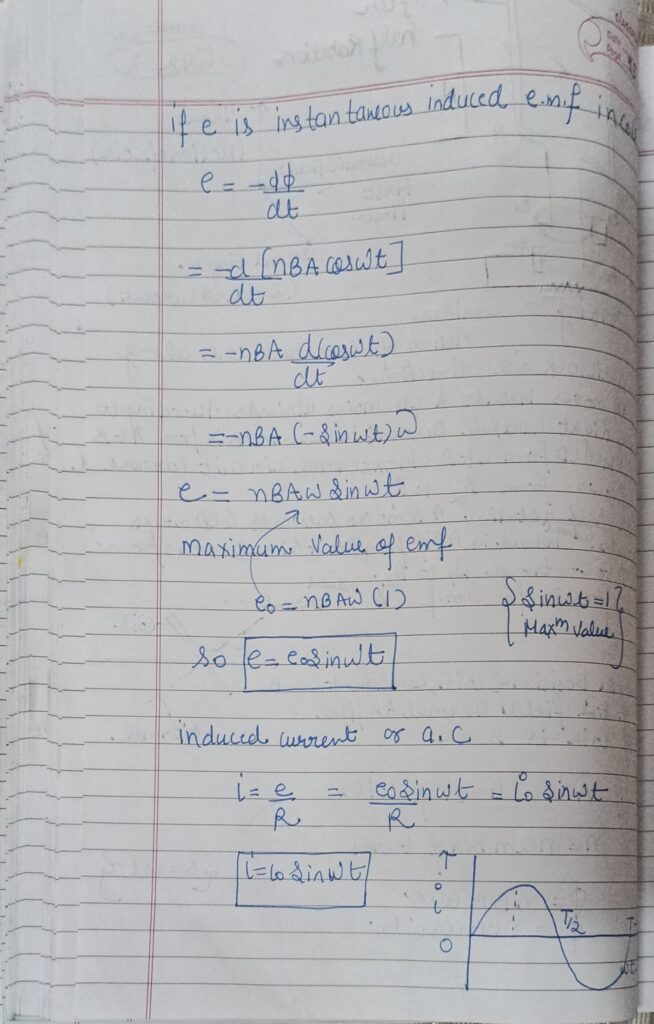 if e is instantaneous induced e.m.f in
e = -dϕ/dt
= -d/dt [nBA cosωt]
= -nBA d(cosωt)/dt
= -nBA (-Sinωt)ω
e = nBAω Sinωt
Maximum Value of emf
e₀ = nBAω (1) { Sinωt = 1
Maxᵐ Value }
So e = e₀Sinωt
induced current or a.c
i = e/R = e₀Sinωt/R = i₀ Sinωt
i = i₀ Sinωt
↑
i
0
T/2
T